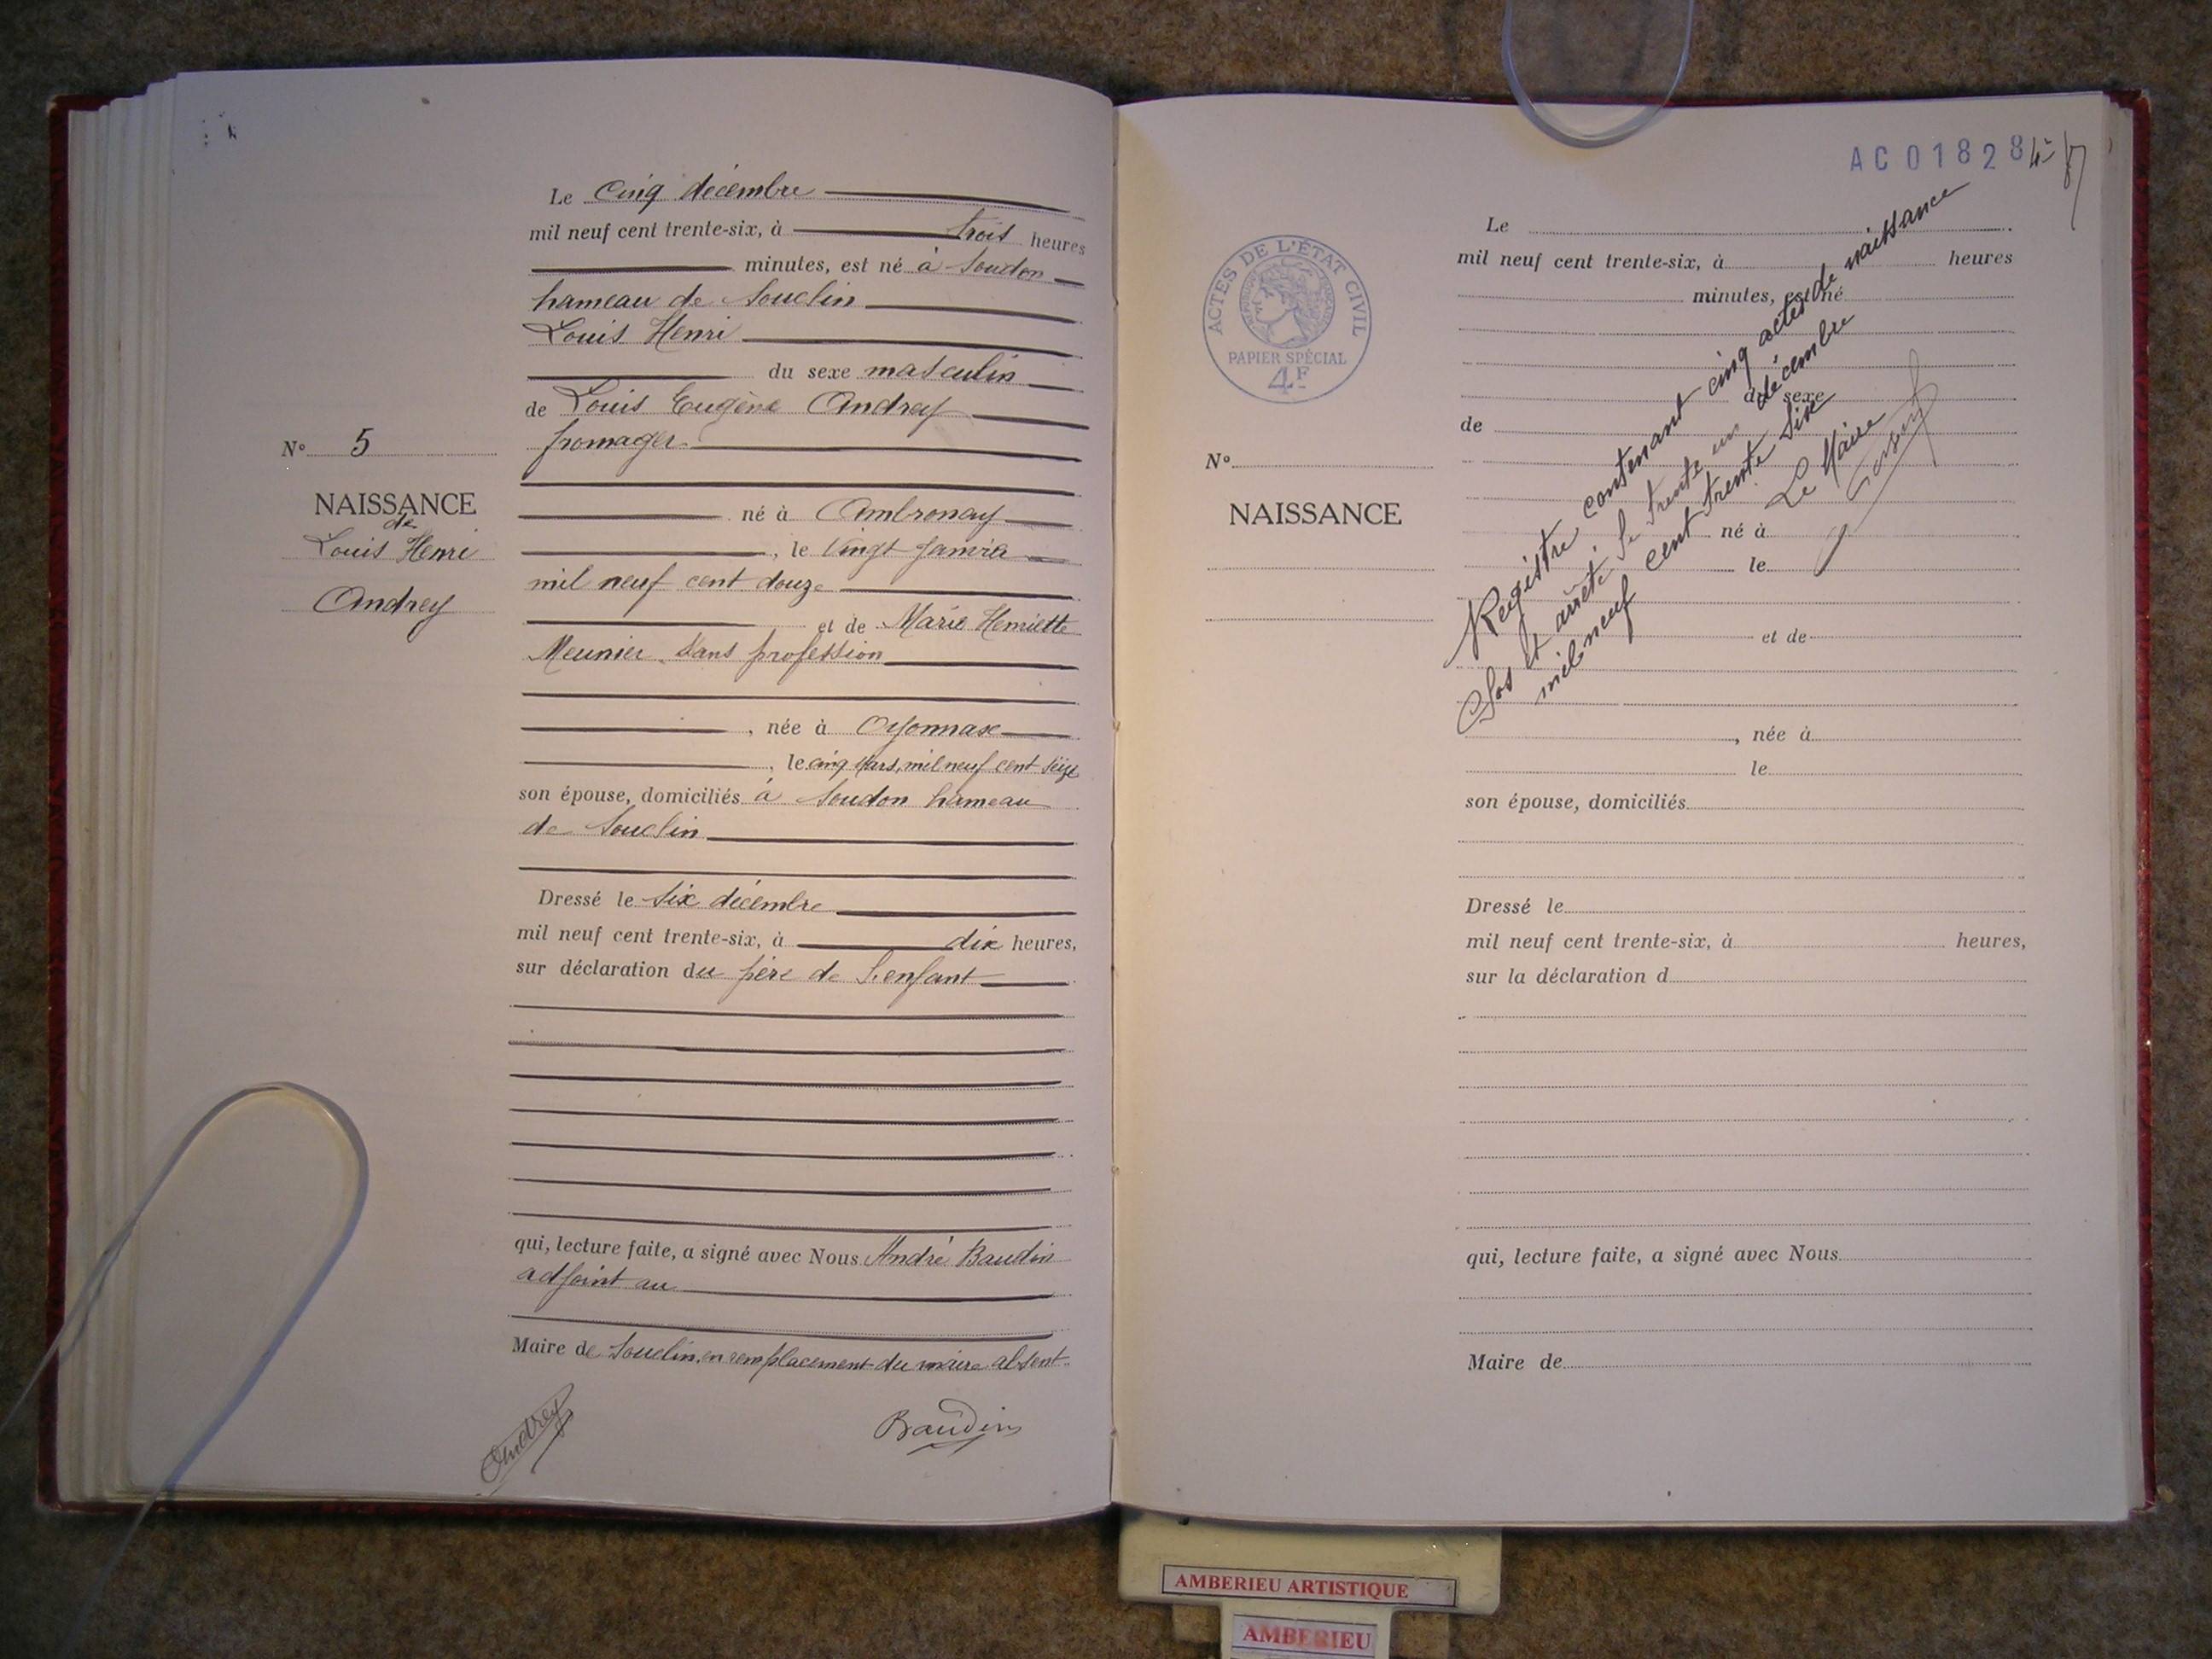 Le cinq décembre
mil neuf cent trente-six, à trois heures
minutes, est né à Soudon
hameau de Souclin
Louis Henri
du sexe masculin
de Louis Eugène Andrey
fromager
N° 5
NAISSANCE
de
Louis Henri
Andrey
né à Ambronay
, le vingt Janvier
mil neuf cent douze
et de Marie Henriette
Meunier sans profession
, née à Oyonnax
, le cinq Mars, mil neuf cent seize
son épouse, domiciliés à Soudon hameau
de Souclin
Dressé le six décembre
mil neuf cent trente-six, à dix heures,
sur déclaration du père de l'enfant
qui, lecture faite, a signé avec Nous André Baudin
adjoint au
Maire de Souclin, en remplacement du maire absent
Andrey
Baudin
AC01828
ACTES DE L'ÉTAT CIVIL
PAPIER SPÉCIAL
4F
Le
mil neuf cent trente-six, à heures
minutes, est né
du sexe
de
N°
NAISSANCE
né à
le
et de
, née à
le
son épouse, domiciliés
Dressé le
mil neuf cent trente-six, à heures,
sur la déclaration d
qui, lecture faite, a signé avec Nous
Maire de
Registre contenant cinq actes de naissance
Clos et arrêté le trente un décembre
mil neuf cent trente six
Le Maire
AMBERIEU ARTISTIQUE
AMBERIEU